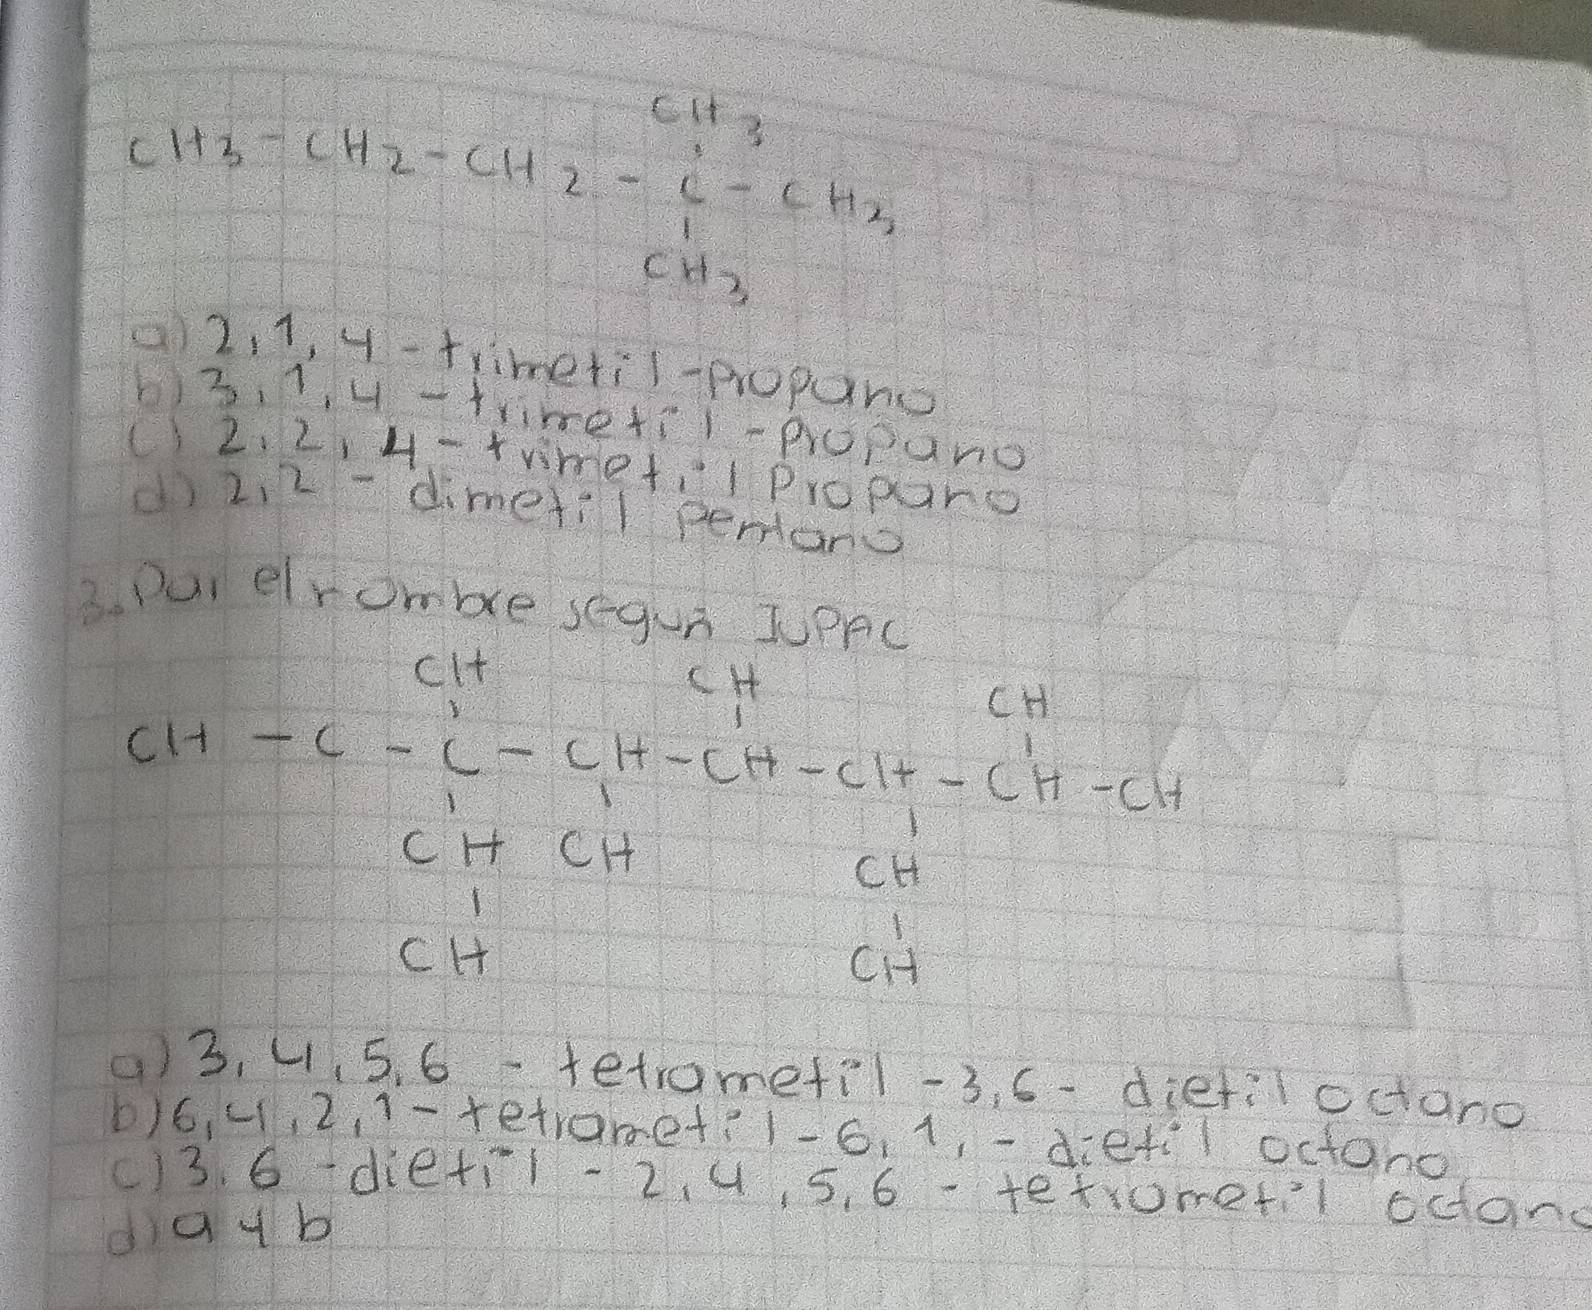 CH3
CH3-CH2-CH2-C-CH3
CH3
a) 2,1,4-trimetil-propano
b) 3,1,4-trimetil-propano
c) 2,2,4-trimetil propano
d) 2,2-dimetil pentano
3. Dar el nombre según IUPAC
CH CH CH
CH-C-C-CH-CH-CH-CH-CH
CH CH CH
CH CH
a) 3,4,5,6-tetrametil-3,6-dietil octano
b) 6,4,2,1-tetrametil-6,1,-dietil octano
c) 3.6-dietil-2,4,5,6-tetrometil octano
d) a y b